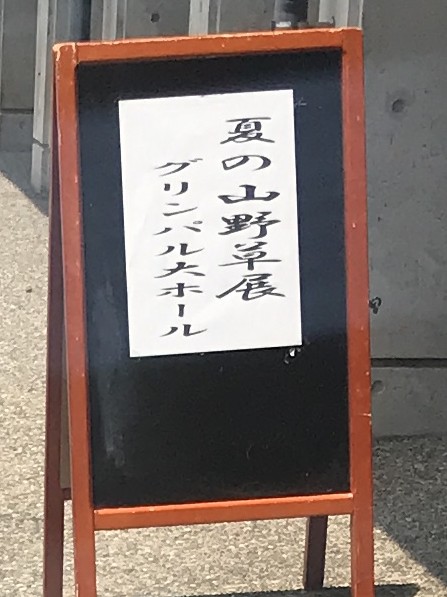 夏の山野草展
グリンパル大ホール